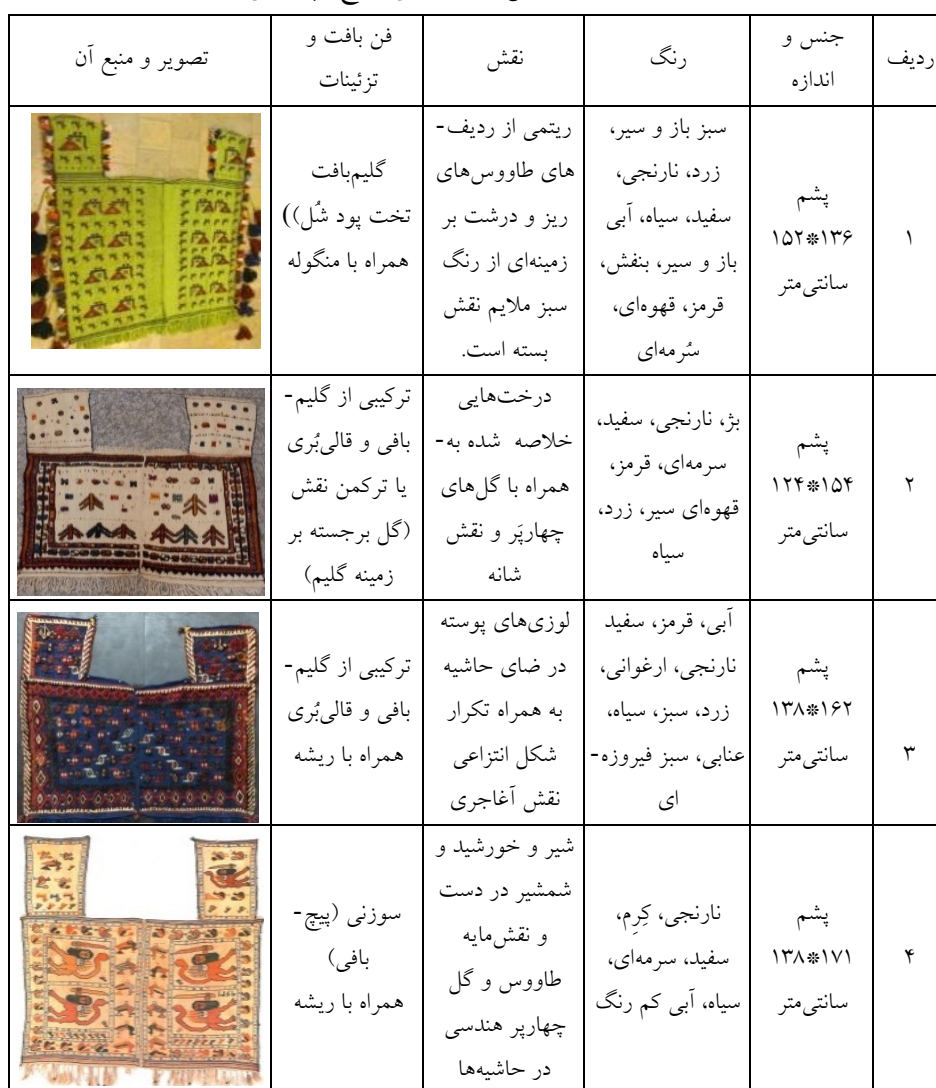 ردیف
جنس و
اندازه
رنگ
نقش
فن بافت و
تزئینات
تصویر و منبع آن
۱
پشم
۱۵۲*۱۳۶
سانتی‌متر
سبز باز و سیر،
زرد، نارنجی،
سفید، سیاه، آبی
باز و سیر، بنفش،
قرمز، قهوه‌ای،
سُرمه‌ای
ریتمی از ردیف-
های طاووس‌های
ریز و درشت بر
زمینه‌ای از رنگ
سبز ملایم نقش
بسته است.
گلیم‌بافت
تخت پود شُل))
همراه با منگوله
۲
پشم
۱۲۴*۱۵۴
سانتی‌متر
بژ، نارنجی، سفید،
سرمه‌ای، قرمز،
قهوه‌ای سیر، زرد،
سیاه
درخت‌هایی
خلاصه شده به-
همراه با گل‌های
چهارپَر و نقش
شانه
ترکیبی از گلیم-
بافی و قالی‌بُری
یا ترکمن نقش
(گل برجسته بر
زمینه گلیم)
۳
پشم
۱۳۸*۱۶۲
سانتی‌متر
آبی، قرمز، سفید
نارنجی، ارغوانی،
زرد، سبز، سیاه،
عنابی، سبز فیروزه-
ای
لوزی‌های پوسته
در ضای حاشیه
به همراه تکرار
شکل انتزاعی
نقش آغاجری
ترکیبی از گلیم-
بافی و قالی‌بُری
همراه با ریشه
۴
پشم
۱۳۸*۱۷۱
سانتی‌متر
نارنجی، کِرِم،
سفید، سرمه‌ای،
سیاه، آبی کم رنگ
شیر و خورشید و
شمشیر در دست
و نقش‌مایه
طاووس و گل
چهارپر هندسی
در حاشیه‌ها
سوزنی (پیچ-
بافی)
همراه با ریشه